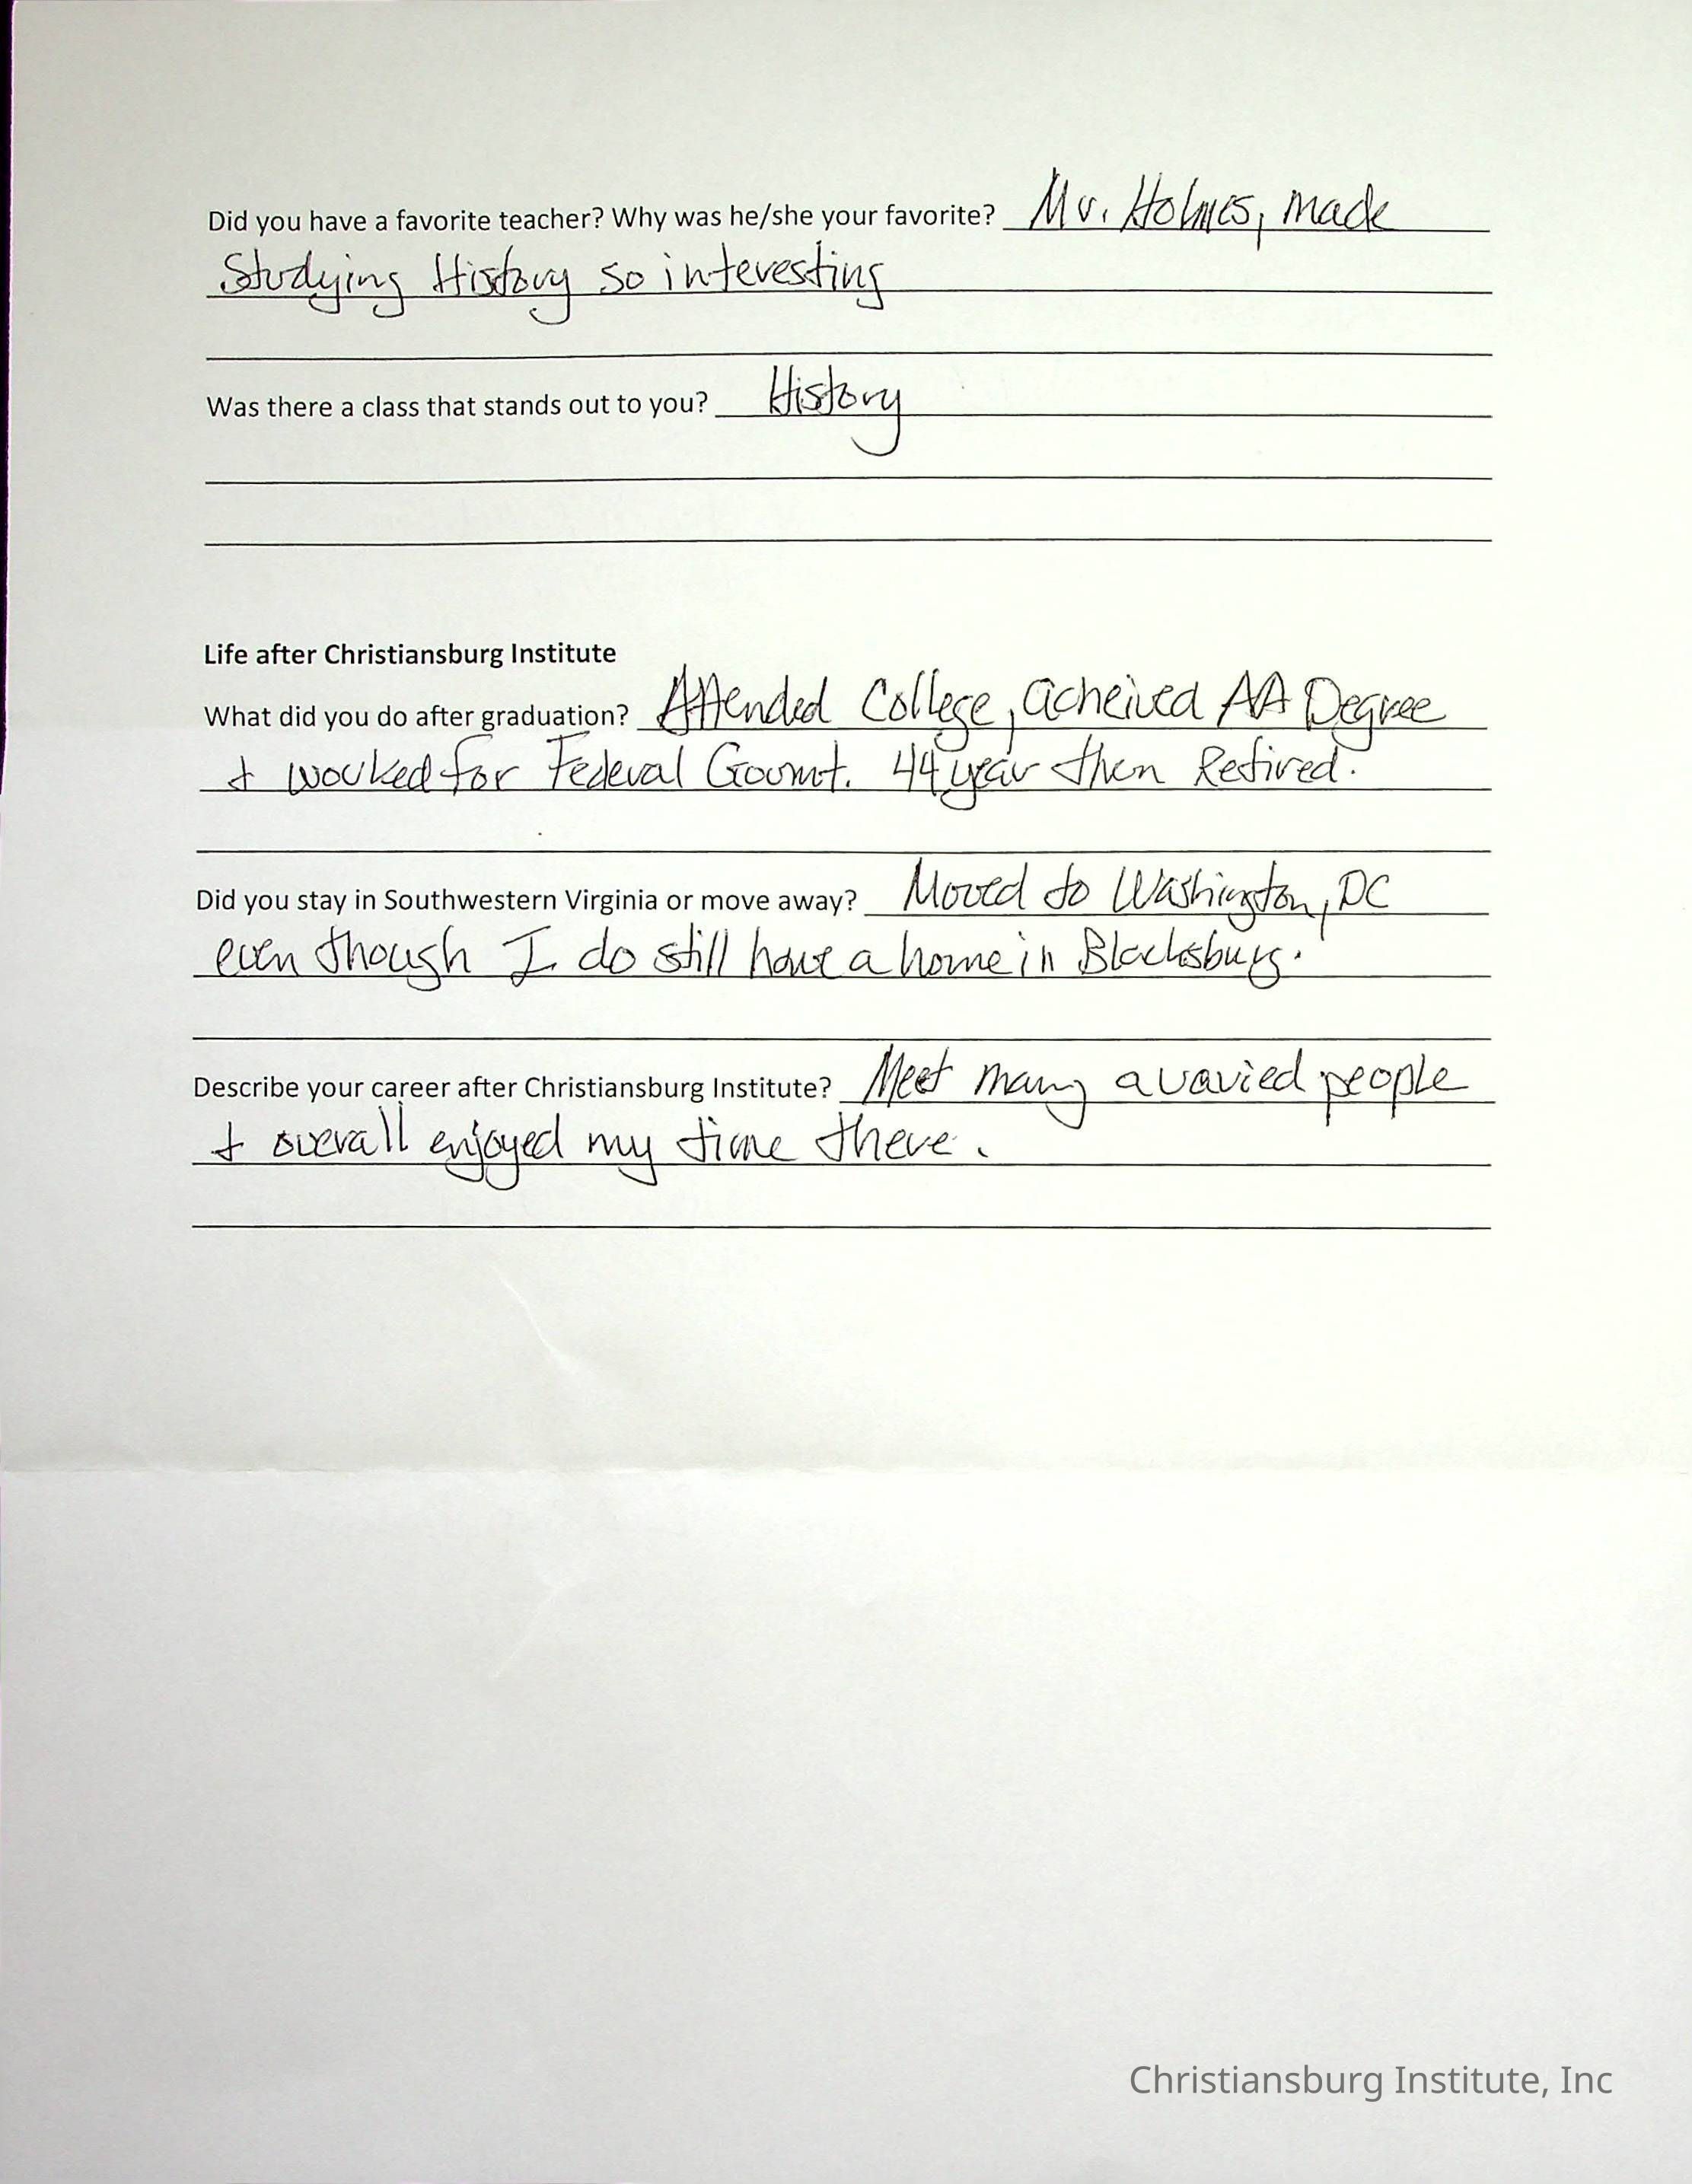 Did you have a favorite teacher? Why was he/she your favorite? Mr. Holmes, made
Studying History so interesting
Was there a class that stands out to you? History
Life after Christiansburg Institute
What did you do after graduation? Attended College, acheived AA Degree
& worked for Federal Govmt. 44 year then Retired.
Did you stay in Southwestern Virginia or move away? Moved to Washington, DC
even though I do still have a home in Blacksburg.
Describe your career after Christiansburg Institute? Meet many a varied people
& overall enjoyed my time there.
Christiansburg Institute, Inc